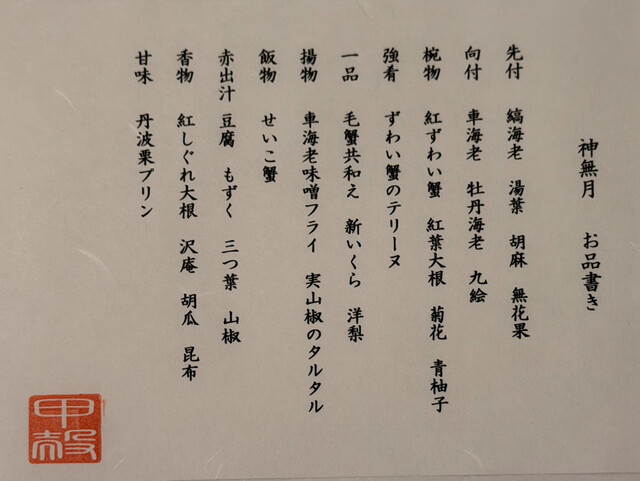 神無月　お品書き
先付　縞海老　湯葉　胡麻　無花果
向付　車海老　牡丹海老　九絵
椀物　紅ずわい蟹　紅葉大根　菊花　青柚子
強肴　ずわい蟹のテリーヌ
一品　毛蟹共和え　新いくら　洋梨
揚物　車海老味噌フライ　実山椒のタルタル
飯物　せいこ蟹
赤出汁　豆腐　もずく　三つ葉　山椒
香物　紅しぐれ大根　沢庵　胡瓜　昆布
甘味　丹波栗プリン
甲殻